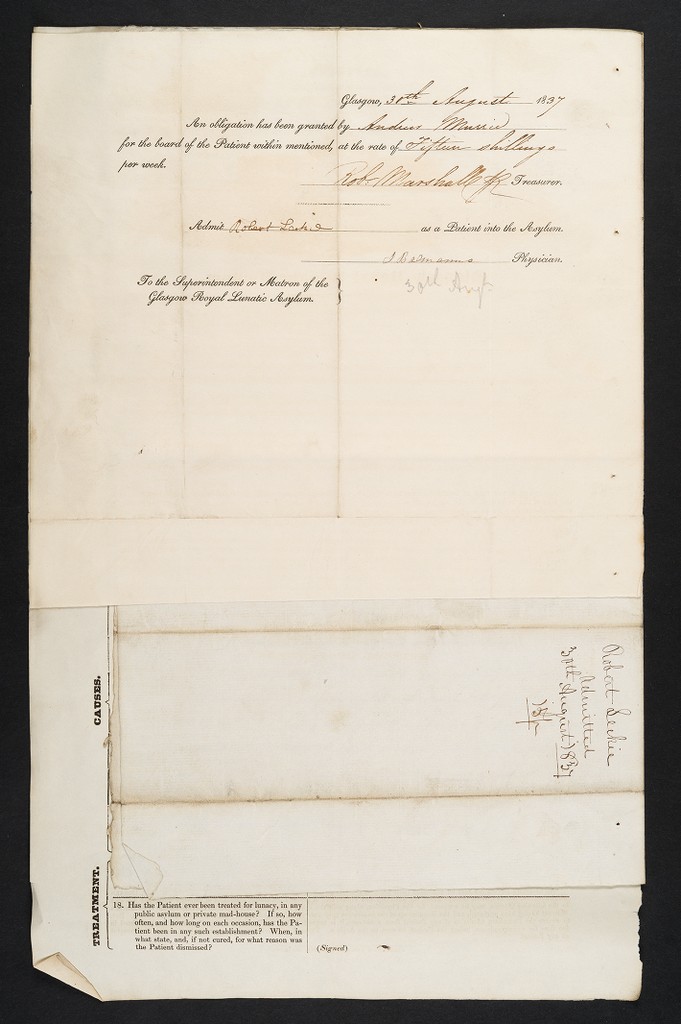 Glasgow, 30th August 1837
An obligation has been granted by Andrew
for the board of the Patient within mentioned, at the rate of Fifteen shillings
per week.
Rob. Marshall Treasurer.
Admit Robert Leckie as a Patient into the Asylum.
Physician.
30th Augt
To the Superintendent or Matron of the
Glasgow Royal Lunatic Asylum.
Robert Leckie
Admitted
30th August 1837
15/
CAUSES.
TREATMENT.
18. Has the Patient ever been treated for lunacy, in any
public asylum or private mad-house? If so, how
often, and how long on each occasion, has the Pa-
tient been in any such establishment? When, in
what state, and, if not cured, for what reason was
the Patient dismissed?
(Signed)